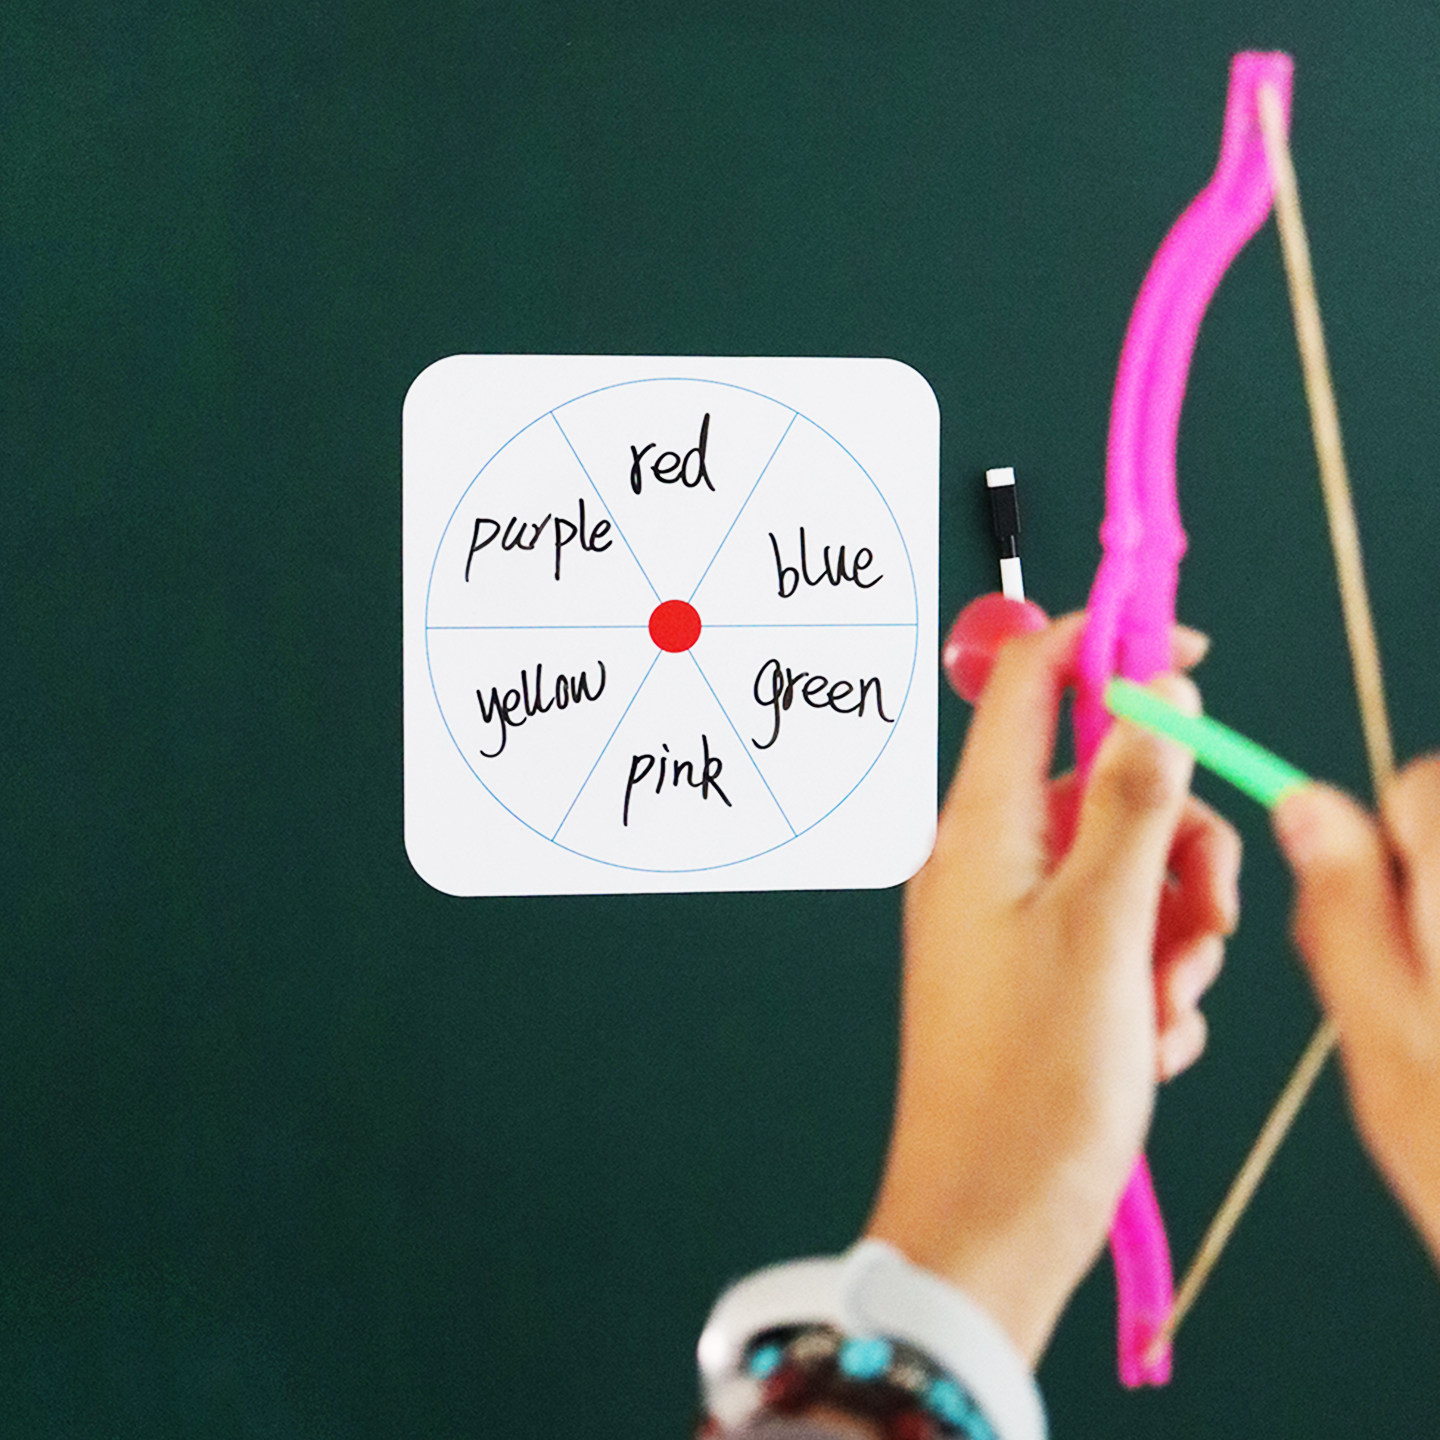 red
purple
blue
yellow
green
pink